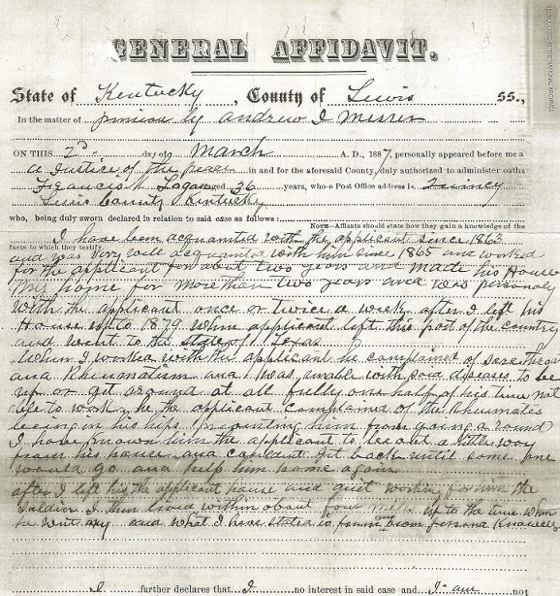 GENERAL AFFIDAVIT.
State of Kentucky, County of Lewis ss.,
In the matter of pension by Andrew J Messer
ON THIS 2d day of March A. D., 1887, personally appeared before me a
a Justice of the peace in and for the aforesaid County, duly authorized to administer oaths
Francis Logan aged 36 years, whose Post Office address is
Lewis County Kentucky
who, being duly sworn declared in relation to said case as follows:
NOTE—Affiants should state how they gain a knowledge of the
facts to which they testify.
I have been acquainted with the applicant since 1863
and was very well acquainted with him since 1865 and worked
for the applicant for about two years and made his House
my home for more than two years and was personely
with the applicant once or twice a week after I left his
House up to 1879 when applicant left this part of the country
and went to the State of Texas
When I worked with the applicant he complained of sore throat
and Rheumatism and was unable with said diseases to be
up or get around at all fully one half of his time not
able to work, he the applicant complained of the Rheumatis
being in his hips preventing him from going around
I have known him the applicant to be out a little way
from his house and couldent get back until some one
would go and help him home again
after I left his the applicant house and quit working for him the
Soldier I then lived within about four miles up to the time when
he went away and what I have stated is from personal Knowledge
I further declares that I no interest in said case and I am not